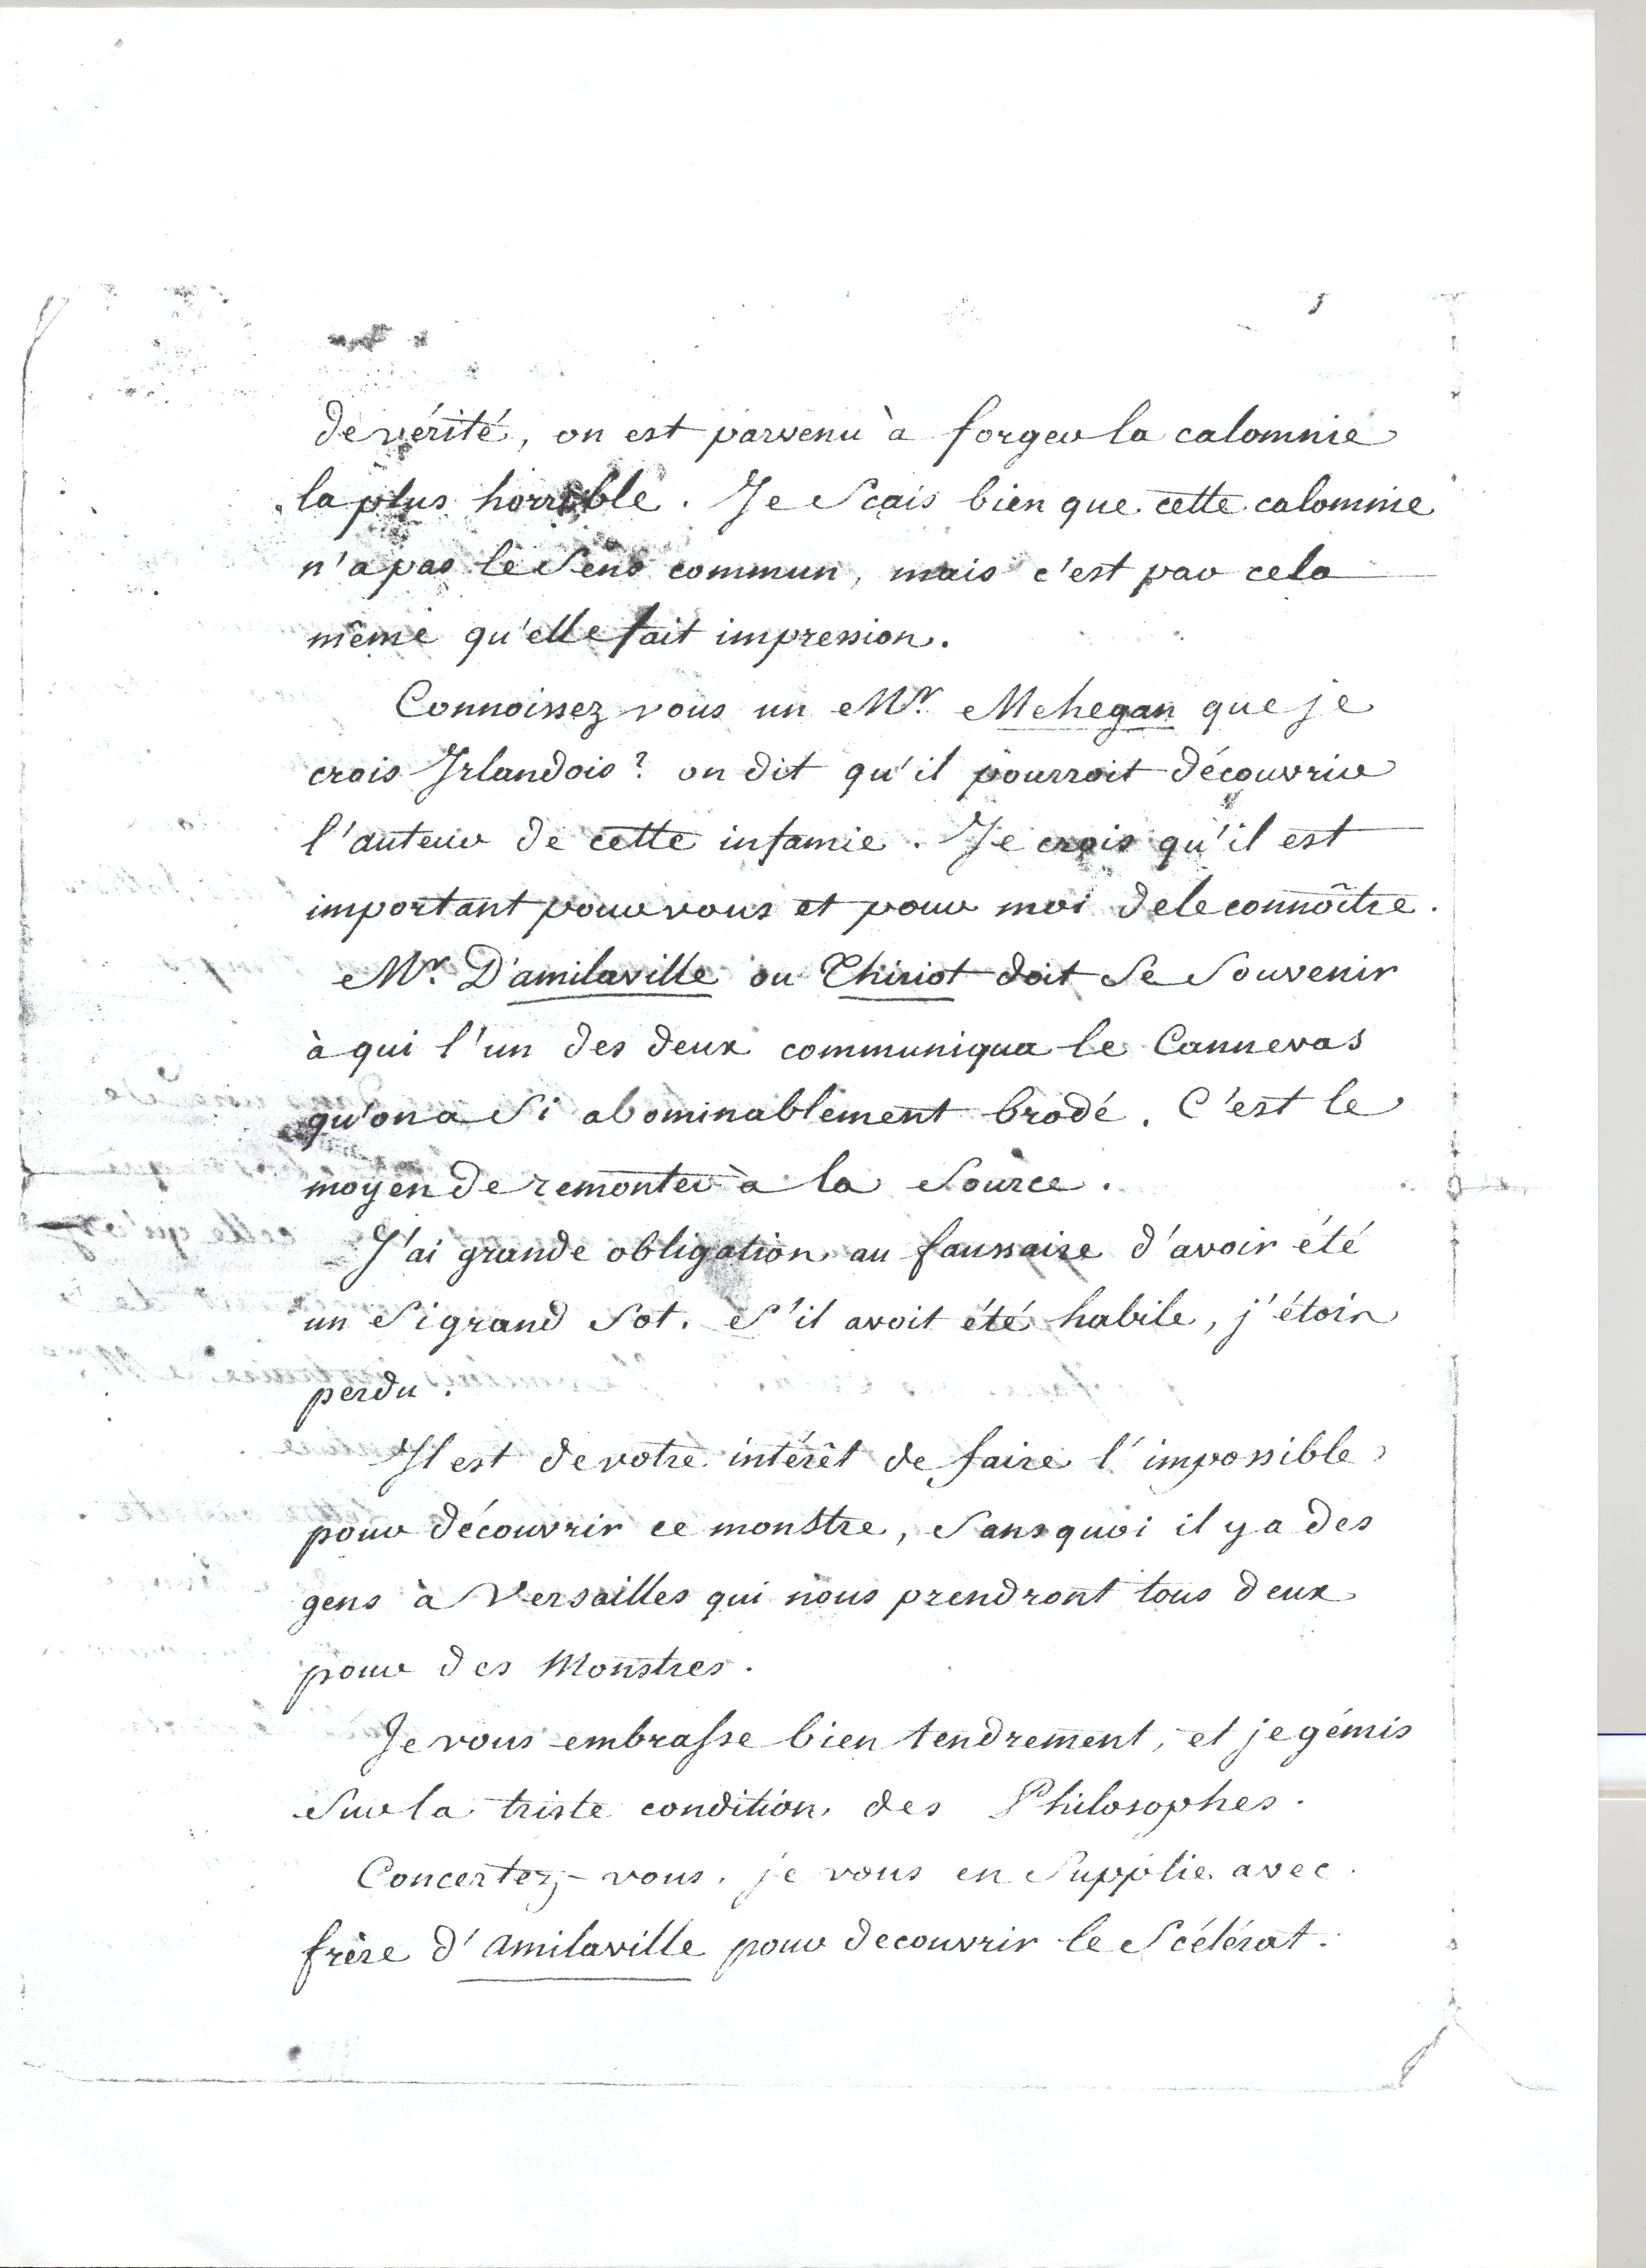 de vérité, on est parvenu à forger la calomnie
la plus horrible. Je Scais bien que cette calomnie
n'a pas le Sens commun, mais c'est par cela
même qu'elle fait impression.
Connoissez vous un Mr. Mehegan que je
crois Irlandois? on dit qu'il pourroit découvrir
l'auteur de cette infamie. Je crois qu'il est
important pour vous et pour moi de le connoître.
Mr. D'amilaville ou Thiriot doit Se Souvenir
à qui l'un des deux communiqua le Cannevas
qu'on a Si abominablement brodé. C'est le
moyen de remonter à la Source.
J'ai grande obligation au faussaire d'avoir été
un Si grand Sot. S'il avoit été habile, j'étois
perdu.
Il est de votre intérêt de faire l'impossible
pour découvrir ce monstre, Sans quoi il y a des
gens à Versailles qui nous prendront tous deux
pour des Monstres.
Je vous embrasse bien tendrement, et je gémis
Sur la triste condition des Philosophes.
Concertez-vous, je vous en Supplie avec
frère d'amilaville pour decouvrir le Scélérat.